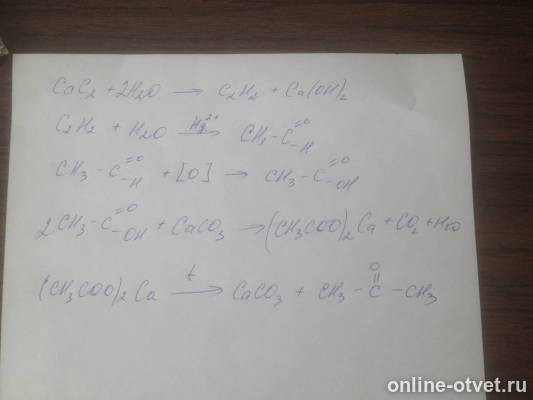 CaC2 + 2H2O → C2H2 + Ca(OH)2
C2H2 + H2O —Hg2+→ CH3-C(=O)-H
CH3-C(=O)-H + [O] → CH3-C(=O)-OH
2CH3-C(=O)-OH + CaCO3 → (CH3COO)2Ca + CO2 + H2O
(CH3COO)2Ca —t→ CaCO3 + CH3-C(=O)-CH3
online-otvet.ru